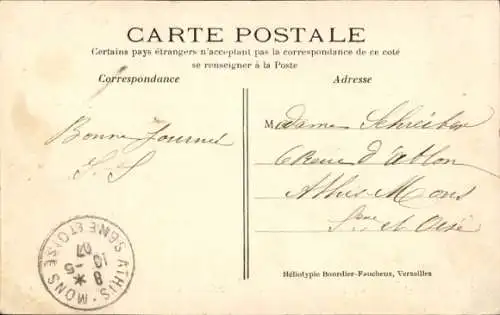 CARTE POSTALE
Certains pays étrangers n'acceptant pas la correspondance de ce coté
se renseigner à la Poste
Correspondance
Adresse
Bonne Journée
S. S
Madame Schreiber
d'Ablon
Athis-Mons
Seine et Oise
ATHIS-MONS SEINE ET OISE
8 *
10 -5
07
Héliotypie Bourdier-Faucheux, Versailles